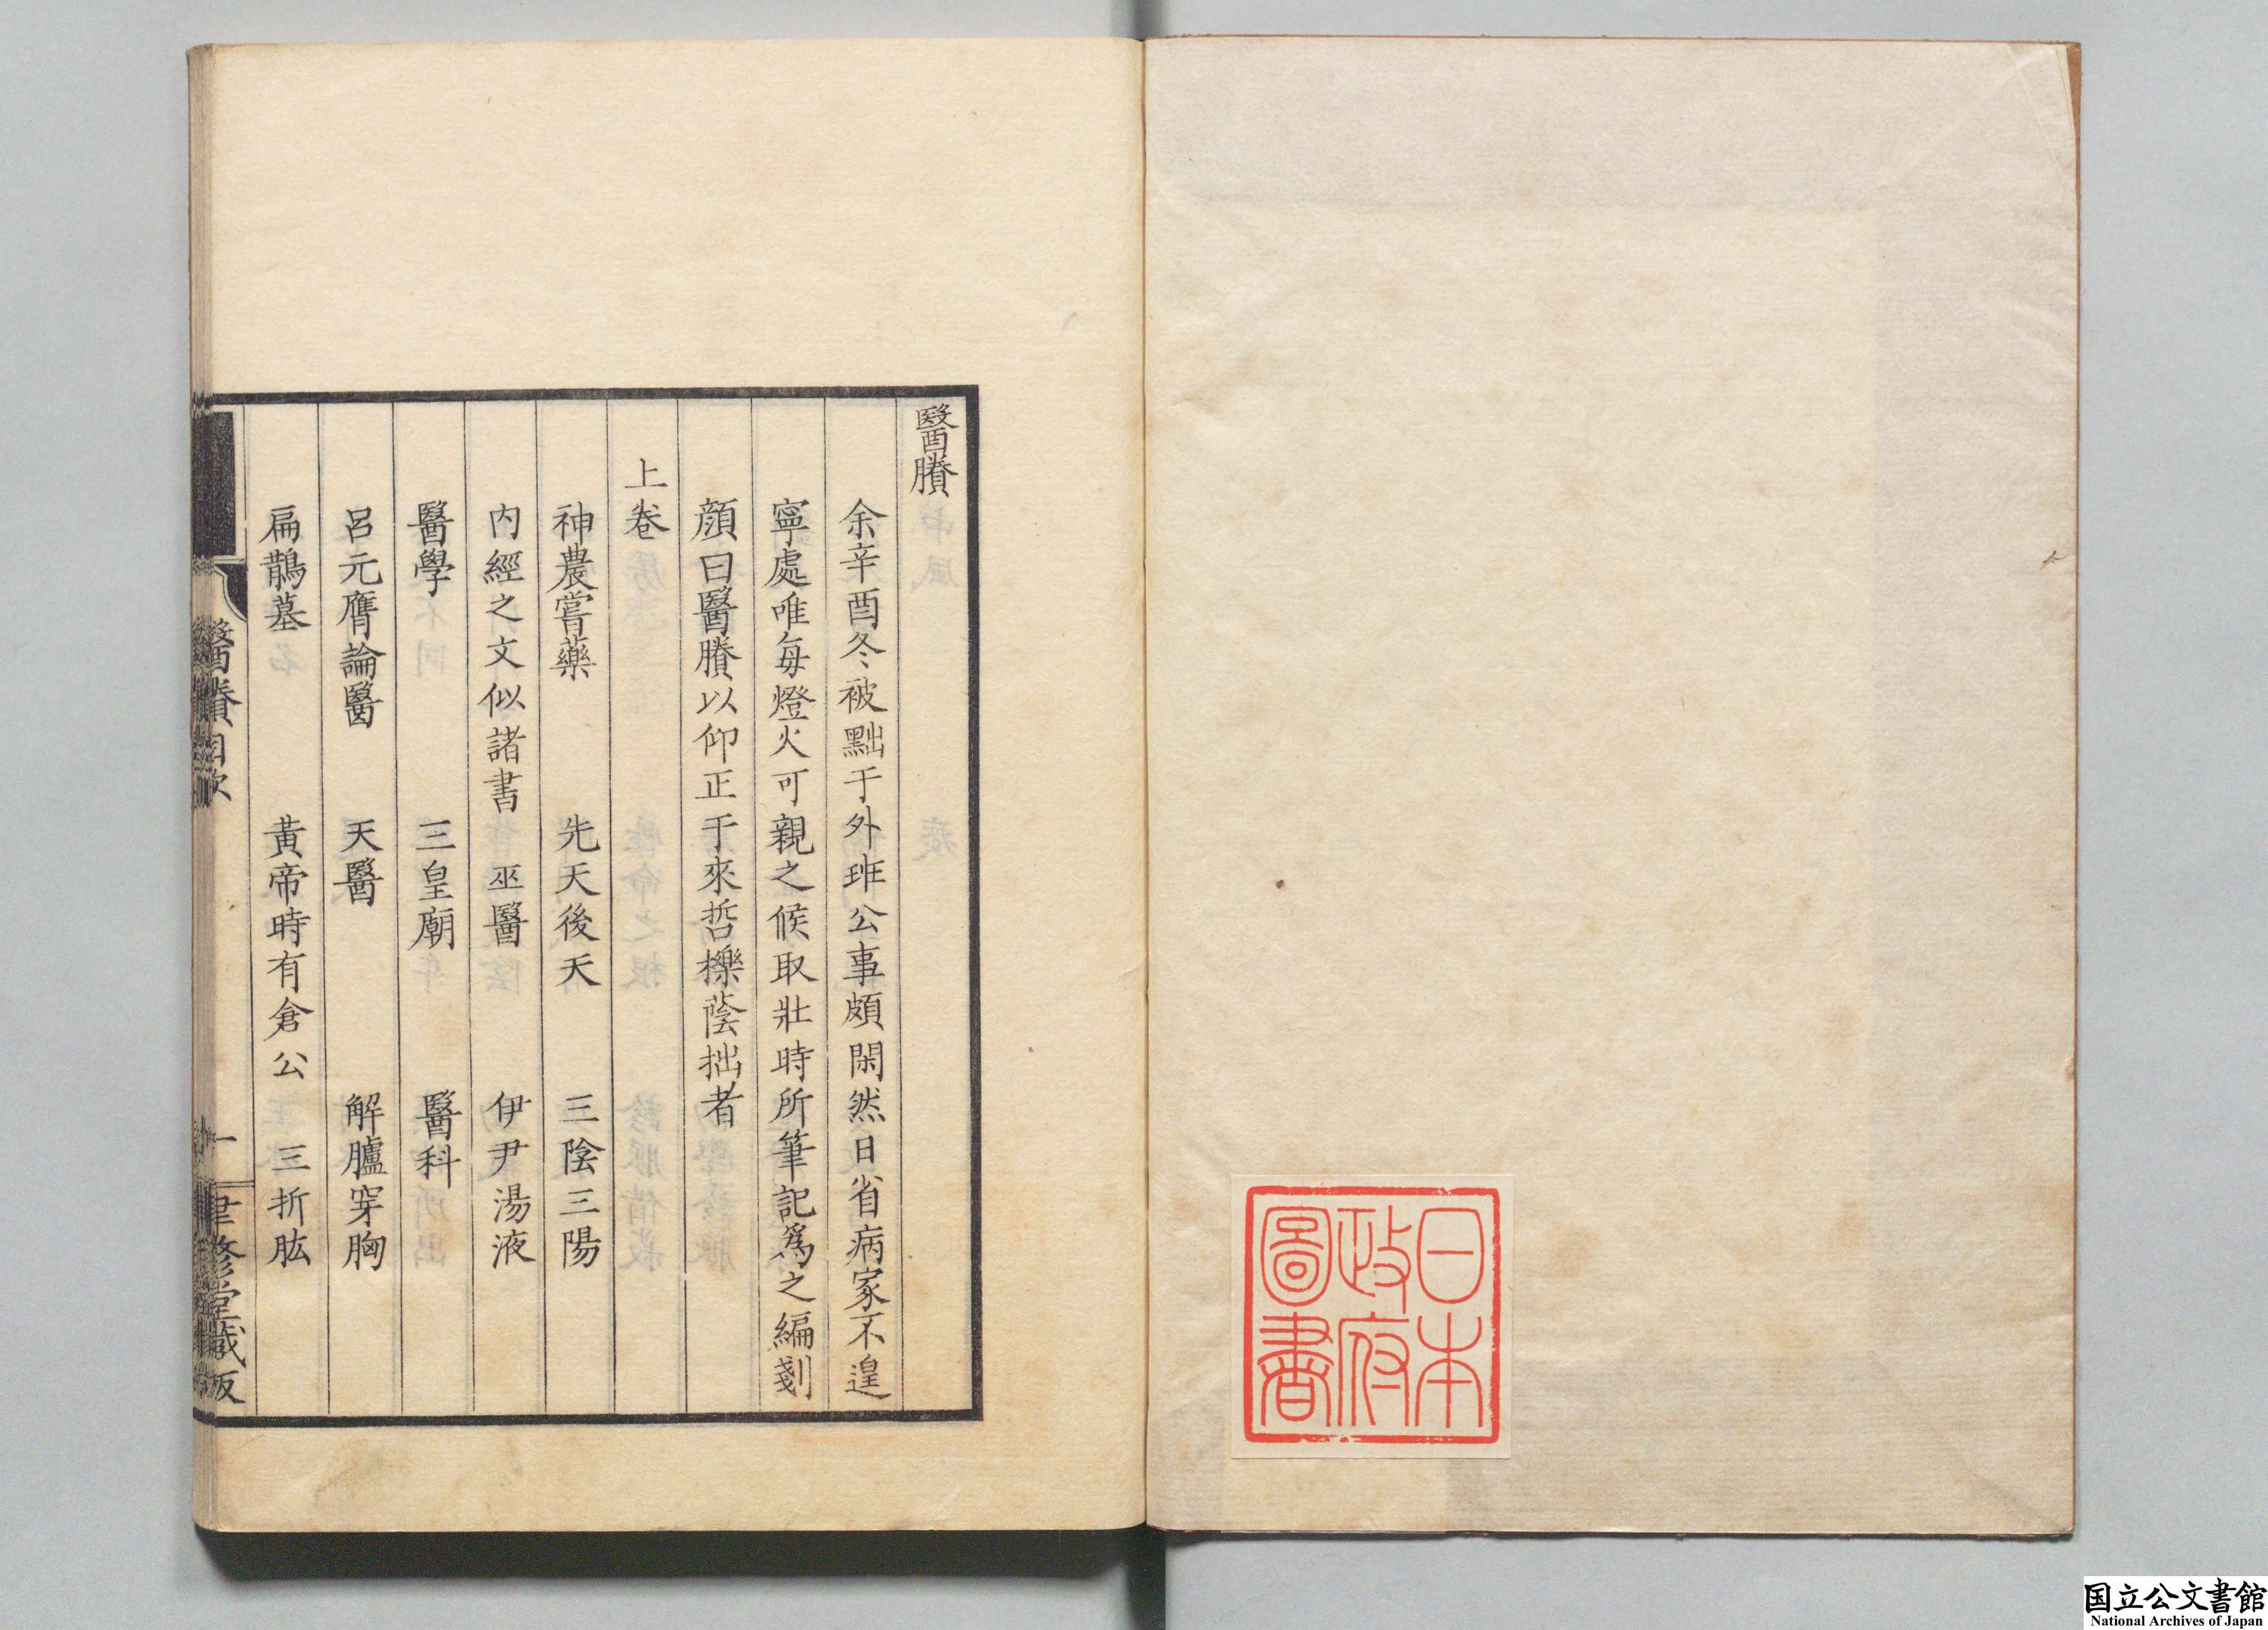 日本
政府
圖書
醫賸
余辛酉冬被黜于外班公事頗閑然日省病家不遑
寧處唯每燈火可親之候取壯時所筆記爲之編剗
顏曰醫賸以仰正于來哲櫟蔭拙者
上卷
神農嘗藥 先天後天 三陰三陽
內經之文似諸書 巫醫 伊尹湯液
醫學 三皇廟 醫科
呂元膺論醫 天醫 解臚穿胸
扁鵲墓 黃帝時有倉公 三折肱
醫賸目次 一 聿修堂藏版
国立公文書館
National Archives of Japan